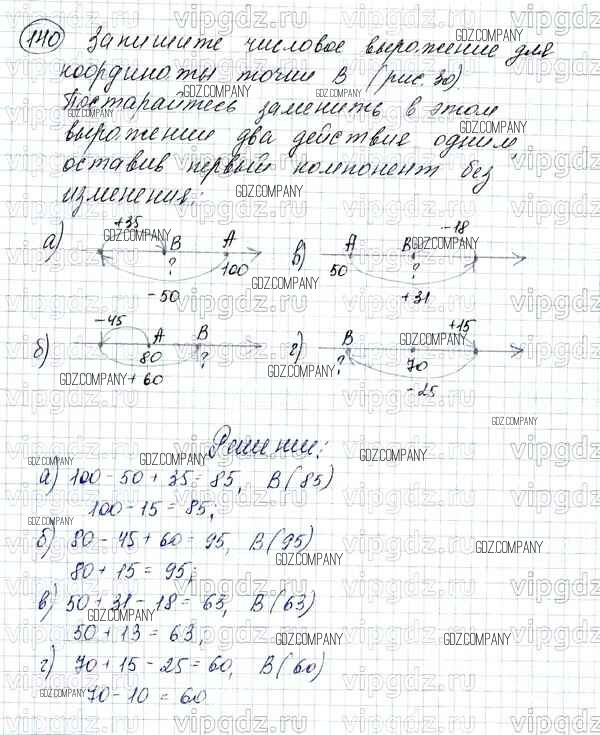 140 Запишите числовое выражение для
координаты точки В (рис. 30)
Постарайтесь заменить в этом
выражении два действия одним,
оставив первый компонент без
изменения:
а) +35 В А ? 100 -50
в) -18 А В 50 ? +31
б) -45 А В 80 ? +60
г) +15 В ? 70 -25
Решение:
а) 100 - 50 + 35 = 85, В(85)
100 - 15 = 85;
б) 80 - 45 + 60 = 95, В(95)
80 + 15 = 95;
в) 50 + 31 - 18 = 63, В(63)
50 + 13 = 63;
г) 70 + 15 - 25 = 60, В(60)
70 - 10 = 60
vipgdz.ru
GDZ.COMPANY